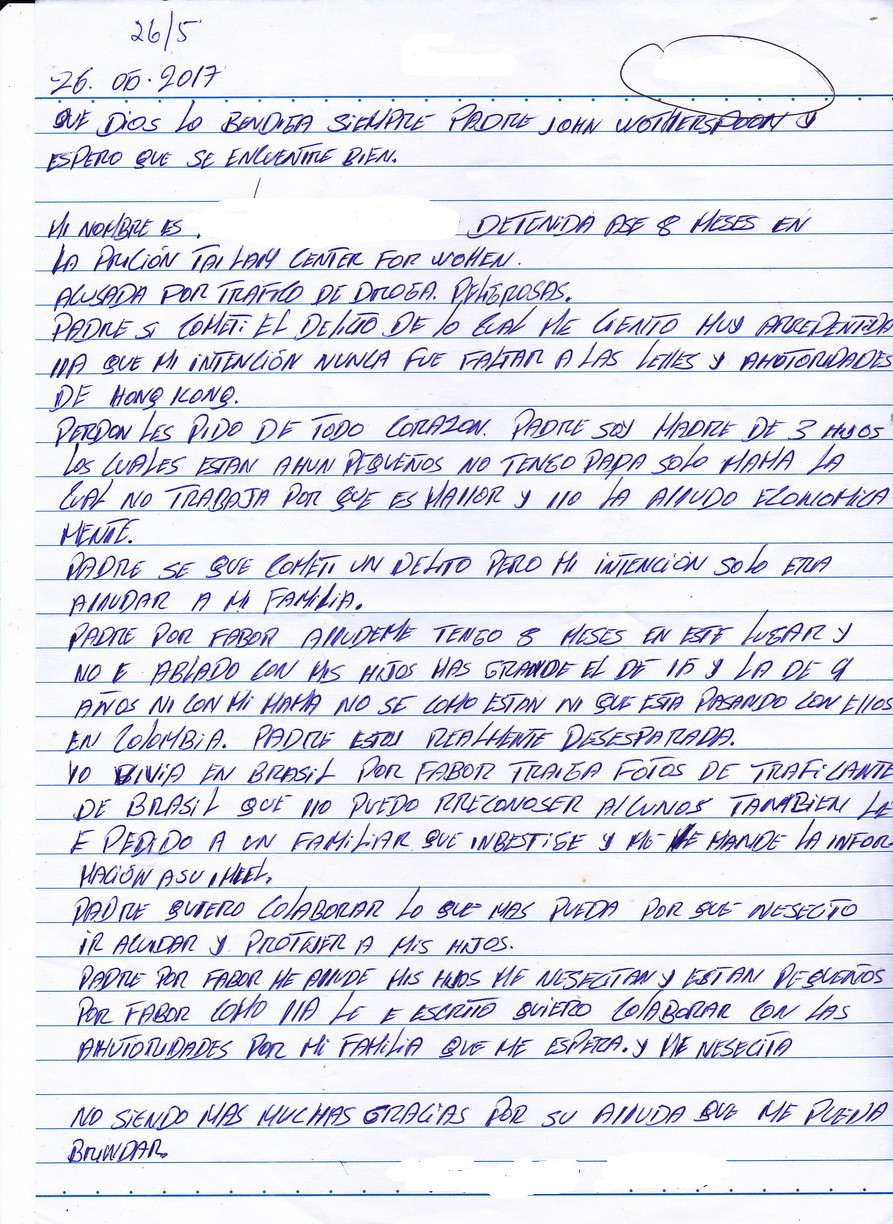 26/5
26. 05. 2017
QUE DIOS LO BENDIGA SIEMPRE PADRE JOHN WOTHERSPOON Y
ESPERO QUE SE ENCUENTRE BIEN.
MI NOMBRE ES DETENIDA ASE 8 MESES EN
LA PRICIÓN TAI LAM CENTER FOR WOMEN.
ACUSADA POR TRAFICO DE DROGA. PELIGROSAS.
PADRE SI COMETI EL DELITO DE LO CUAL ME CIENTO MUY ARREPENTIDA
YA QUE MI INTENCIÓN NUNCA FUE FALTAR A LAS LEYES Y AHUTORIDADES
DE HONG KONG.
PERDON LES PIDO DE TODO CORAZON. PADRE SOY MADRE DE 3 HIJOS
LOS CUALES ESTAN AHUN PEQUEÑOS NO TENGO PAPA SOLO MAMA LA
CUAL NO TRABAJA POR QUE ES MAYOR Y YO LA AYUDO ECONOMICA
MENTE.
PADRE SE QUE COMETI UN DELITO PERO MI INTENCIÓN SOLO ERA
AYUDAR A MI FAMILIA.
PADRE POR FABOR AYUDEME TENGO 8 MESES EN ESTE LUGAR Y
NO E ABLADO CON MIS HIJOS MAS GRANDE EL DE 15 Y LA DE 9
AÑOS NI CON MI MAMA NO SE COMO ESTAN NI QUE ESTA PASANDO CON ELLOS
EN COLOMBIA. PADRE ESTOY REALMENTE DESESPARADA.
YO VIVIA EN BRASIL POR FABOR TRAIGA FOTOS DE TRAFICANTE
DE BRASIL QUE YO PUEDO RRECONOSER ALGUNOS TANBIEN LE
E PEDIDO A UN FAMILIAR QUE INBESTIGE Y ME LE MANDE LA INFOR
MACIÓN A SU IMEEL.
PADRE QUIERO COLABORAR LO QUE MAS PUEDA POR QUE NESECITO
IR A CUIDAR Y PROTEJER A MIS HIJOS.
PADRE POR FABOR ME AYUDE MIS HIJOS ME NESECITAN Y ESTAN PEQUEÑOS
POR FABOR COMO YA LE E ESCRITO QUIERO COLABORAR CON LAS
AHUTORIDADES POR MI FAMILIA QUE ME ESPERA. Y ME NESECITA
NO SIENDO MAS MUCHAS GRACIAS POR SU AYUDA QUE ME PUEDA
BRINDAR.